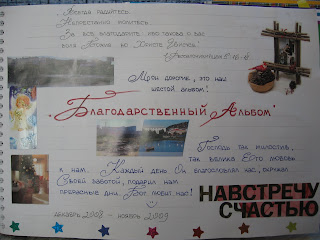 Всегда радуйтесь.
Непрестанно молитесь.
За все благодарите: ибо такова о вас
воля Божия во Христе Иисусе.
Мои дорогие, это наш
шестой альбом!
"Благодарственный Альбом"
Господь так милостив,
так велика Его любовь
к нам. Каждый день Он благословлял нас, окружал
Своей заботой, подарил нам
прекрасные дни. Бог любит нас!
НАВСТРЕЧУ
СЧАСТЬЮ
декабрь 2008 - ноябрь 2009